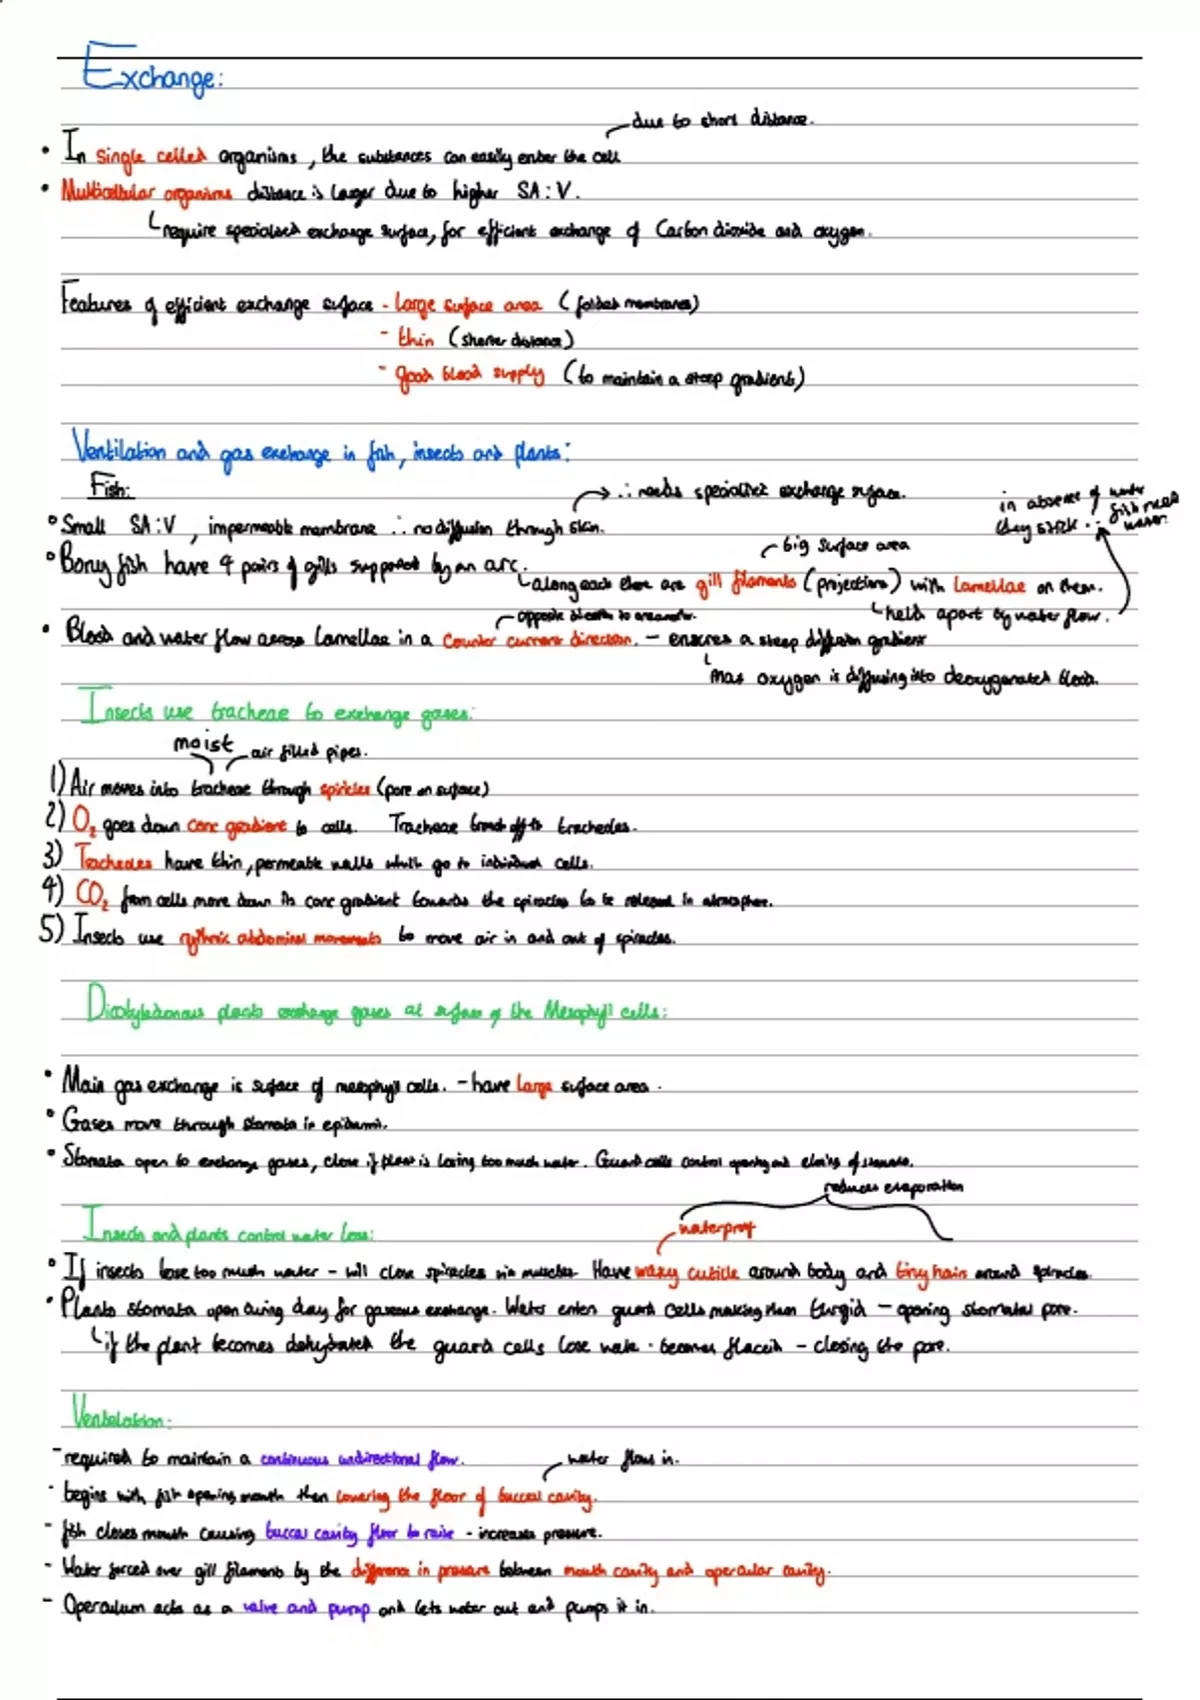 Exchange:
due to short distance.
• In single celled organisms, the substances can easily enter the cell
• Multicellular organisms distance is larger due to higher SA:V.
require specialised exchange surface, for efficient exchange of Carbon dioxide and oxygen.
Features of efficient exchange surface - large surface area (folded membranes)
- thin (shorter distance)
- good blood supply (to maintain a steep gradients)
Ventilation and gas exchange in fish, insects and plants:
Fish:
→ ∴ needs specialised exchange surface.
in absence of water
they stick ∴ fish need water.
• Small SA:V, impermeable membrane ∴ no diffusion through skin.
big surface area
• Bony fish have 4 pairs of gills supported by an arc.
along each there are gill filaments (projections) with lamellae on them.
held apart by water flow.
opposite
• Blood and water flow across lamellae in a counter current direction. - ensures a steep diffusion gradient
max oxygen is diffusing into deoxygenated blood.
Insects use tracheae to exchange gases:
moist
air filled pipes.
1) Air moves into tracheae through spiricles (pore on surface)
2) O₂ goes down conc gradient to cells. Tracheae branch off to tracheoles.
3) Tracheoles have thin, permeable walls which go to individual cells.
4) CO₂ from cells move down its conc gradient towards the spiracles to be released in atmosphere.
5) Insects use rythmic abdominal movements to move air in and out of spiracles.
Dicotyledonous plants exchange gases at surface of the Mesophyll cells:
• Main gas exchange is surface of mesophyll cells. - have large surface area.
• Gases move through stomata in epidermis.
• Stomata open to exchange gases, close if plant is losing too much water. Guard cells control opening and closing of stomata.
reduces evaporation
Insects and plants control water loss:
waterproof
• If insects lose too much water - will close spiracles via muscles. Have waxy cuticle around body and tiny hair around spiracles.
• Plants stomata open during day for gaseous exchange. Water enters guard cells making them turgid - opening stomatal pore.
if the plant becomes dehydrated the guard cells lose water · becomes flaccid - closing the pore.
Ventelation:
- required to maintain a continuous unidirectional flow.
water flows in.
- begins with fish opening mouth then lowering the floor of buccal cavity.
- fish closes mouth causing buccal cavity floor to raise - increases pressure.
- Water forced over gill filaments by the difference in pressure between mouth cavity and opercular cavity.
- Operculum acts as a valve and pump and lets water out and pumps it in.